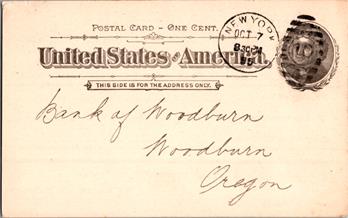 POSTAL CARD - ONE CENT.
United States of America.
THIS SIDE IS FOR THE ADDRESS ONLY.
NEW YORK
OCT 7
Bank of Woodburn
Woodburn
Oregon